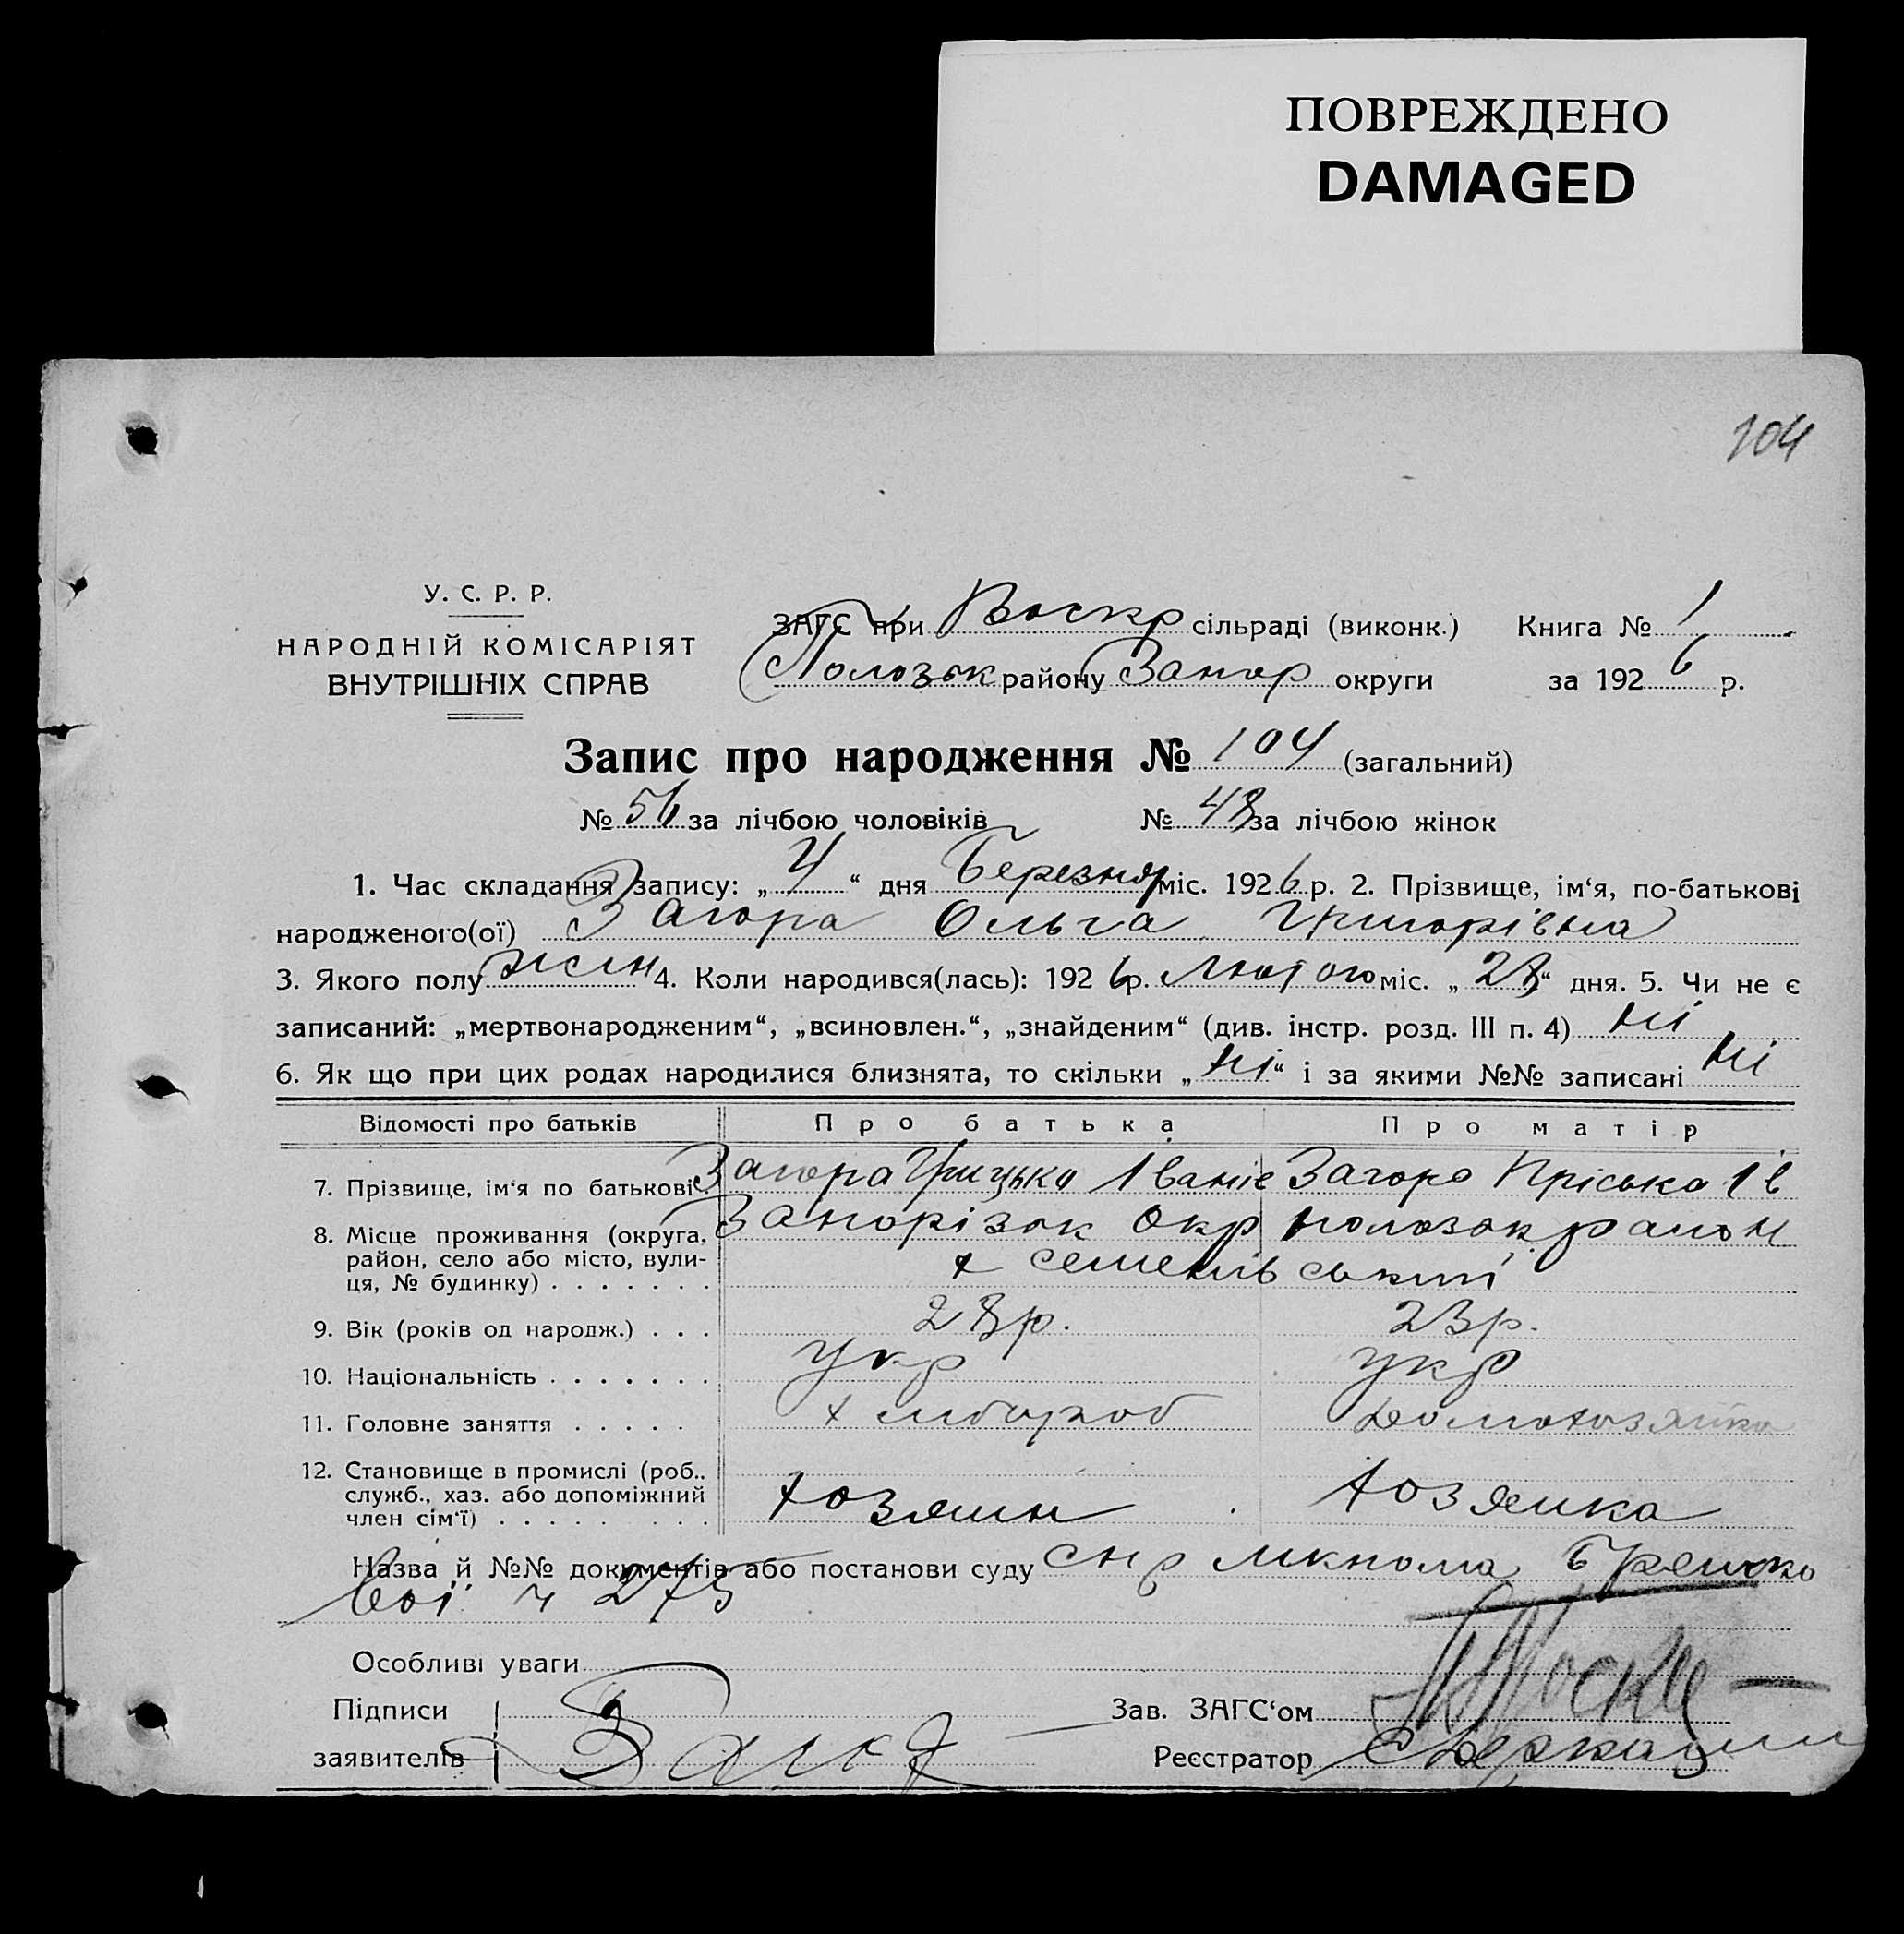 ПОВРЕЖДЕНО
DAMAGED
104
У. С. Р. Р.
НАРОДНІЙ КОМІСАРІЯТ
ВНУТРІШНІХ СПРАВ
ЗАГС при Воскр сільраді (виконк.) Книга № 1
Полозьк району Запор округи за 1926 р.
Запис про народження № 104 (загальний)
№ 56 за лічбою чоловіків № 48 за лічбою жінок
1. Час складання запису: „ 4 “ дня Березня міс. 1926 р. 2. Прізвище, ім‘я, по-батькові
народженого(ої) Загора Ольга Григорівна
3. Якого полу жен 4. Коли народився(лась): 1926 р. Лютого міс. „ 28 “ дня. 5. Чи не є
записаний: „мертвонародженим“, „всиновлен.“, „знайденим“ (див. інстр. розд. III п. 4) ні
6. Як що при цих родах народилися близнята, то скільки „ ні “ і за якими №№ записані ні
Відомості про батьків Про батька Про матір
7. Прізвище, ім‘я по батькові . Загора Грицько Іваніе Загора Пріська Ів
8. Місце проживання (округа, район, село або місто, вулиця, № будинку) . . . . . . . Запорізок Окр полозок район
х семенівський
9. Вік (років од народж.) . . . 28 р. 23 р.
10. Національність . . . . . . . Укр укр
11. Головне заняття . . . . . хлібороб Домохозяйка
12. Становище в промислі (роб., служб., хаз. або допоміжний член сім‘ї) . . . . . . . . хозяин хозяика
Назва й №№ документів або постанови суду
275
Особливі уваги
Підписи
заявителів Заго
Зав. ЗАГС‘ом
Реєстратор